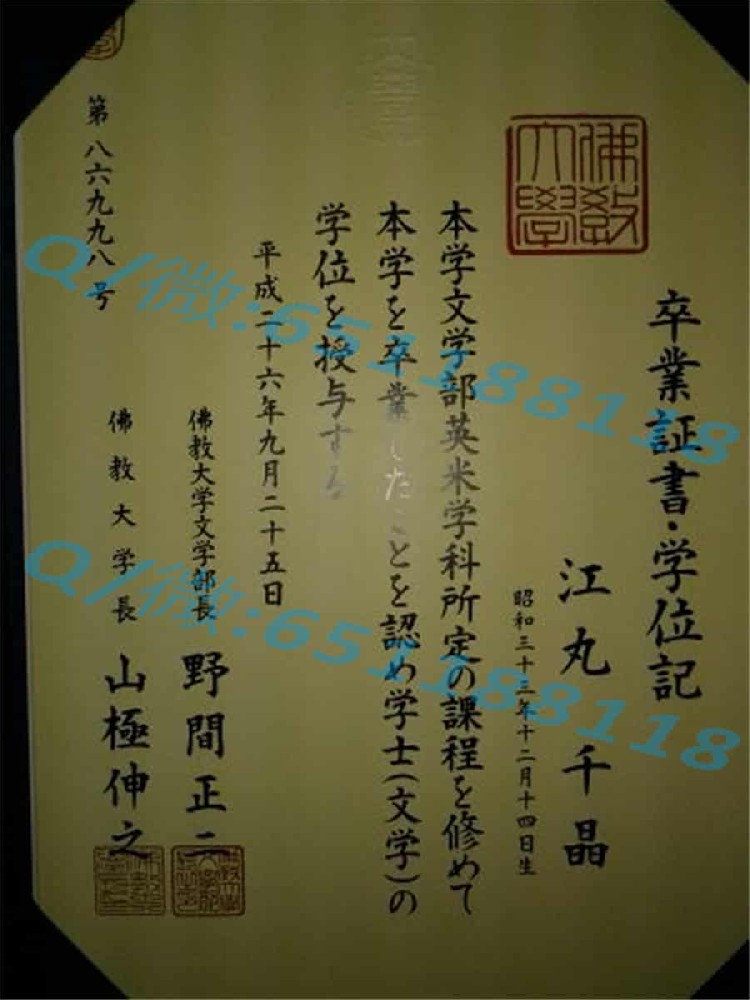 卒業証書・学位記
佛教
大學
江丸千晶
昭和三十三年十二月十四日生
本学文学部英米学科所定の課程を修めて
本学を卒業したことを認め学士(文学)の
学位を授与する
平成二十六年九月二十五日
佛教大学文学部長 野間正二
佛教大学長 山極伸之
第八六九九八号
Q/微:651188118
Q/微:651188118